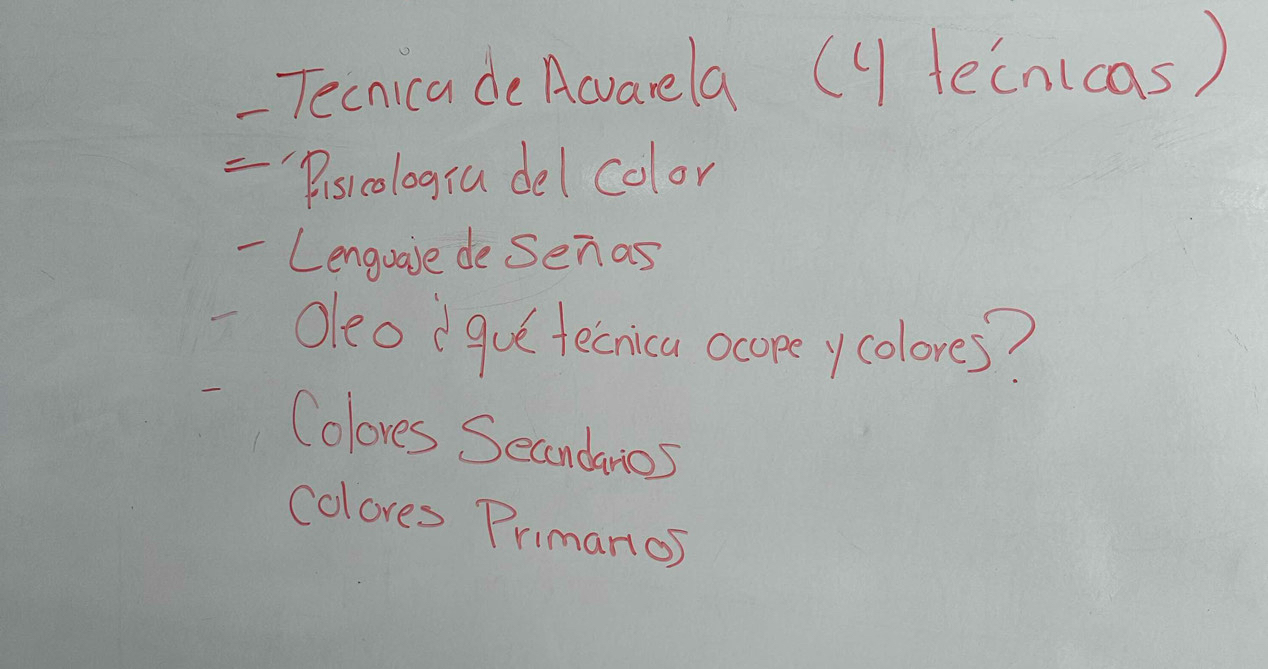 - Técnica de Acuarela (4 técnicas)
= Pisicología del color
- Lenguaje de Señas
- Oleo ¿qué técnica ocope y colores?
- Colores Secundarios
Colores Primarios